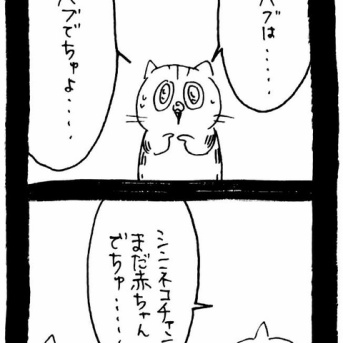 バブは……
バブでちゅよ……
シンネコチャン
まだ赤ちゃん
でちゅ……